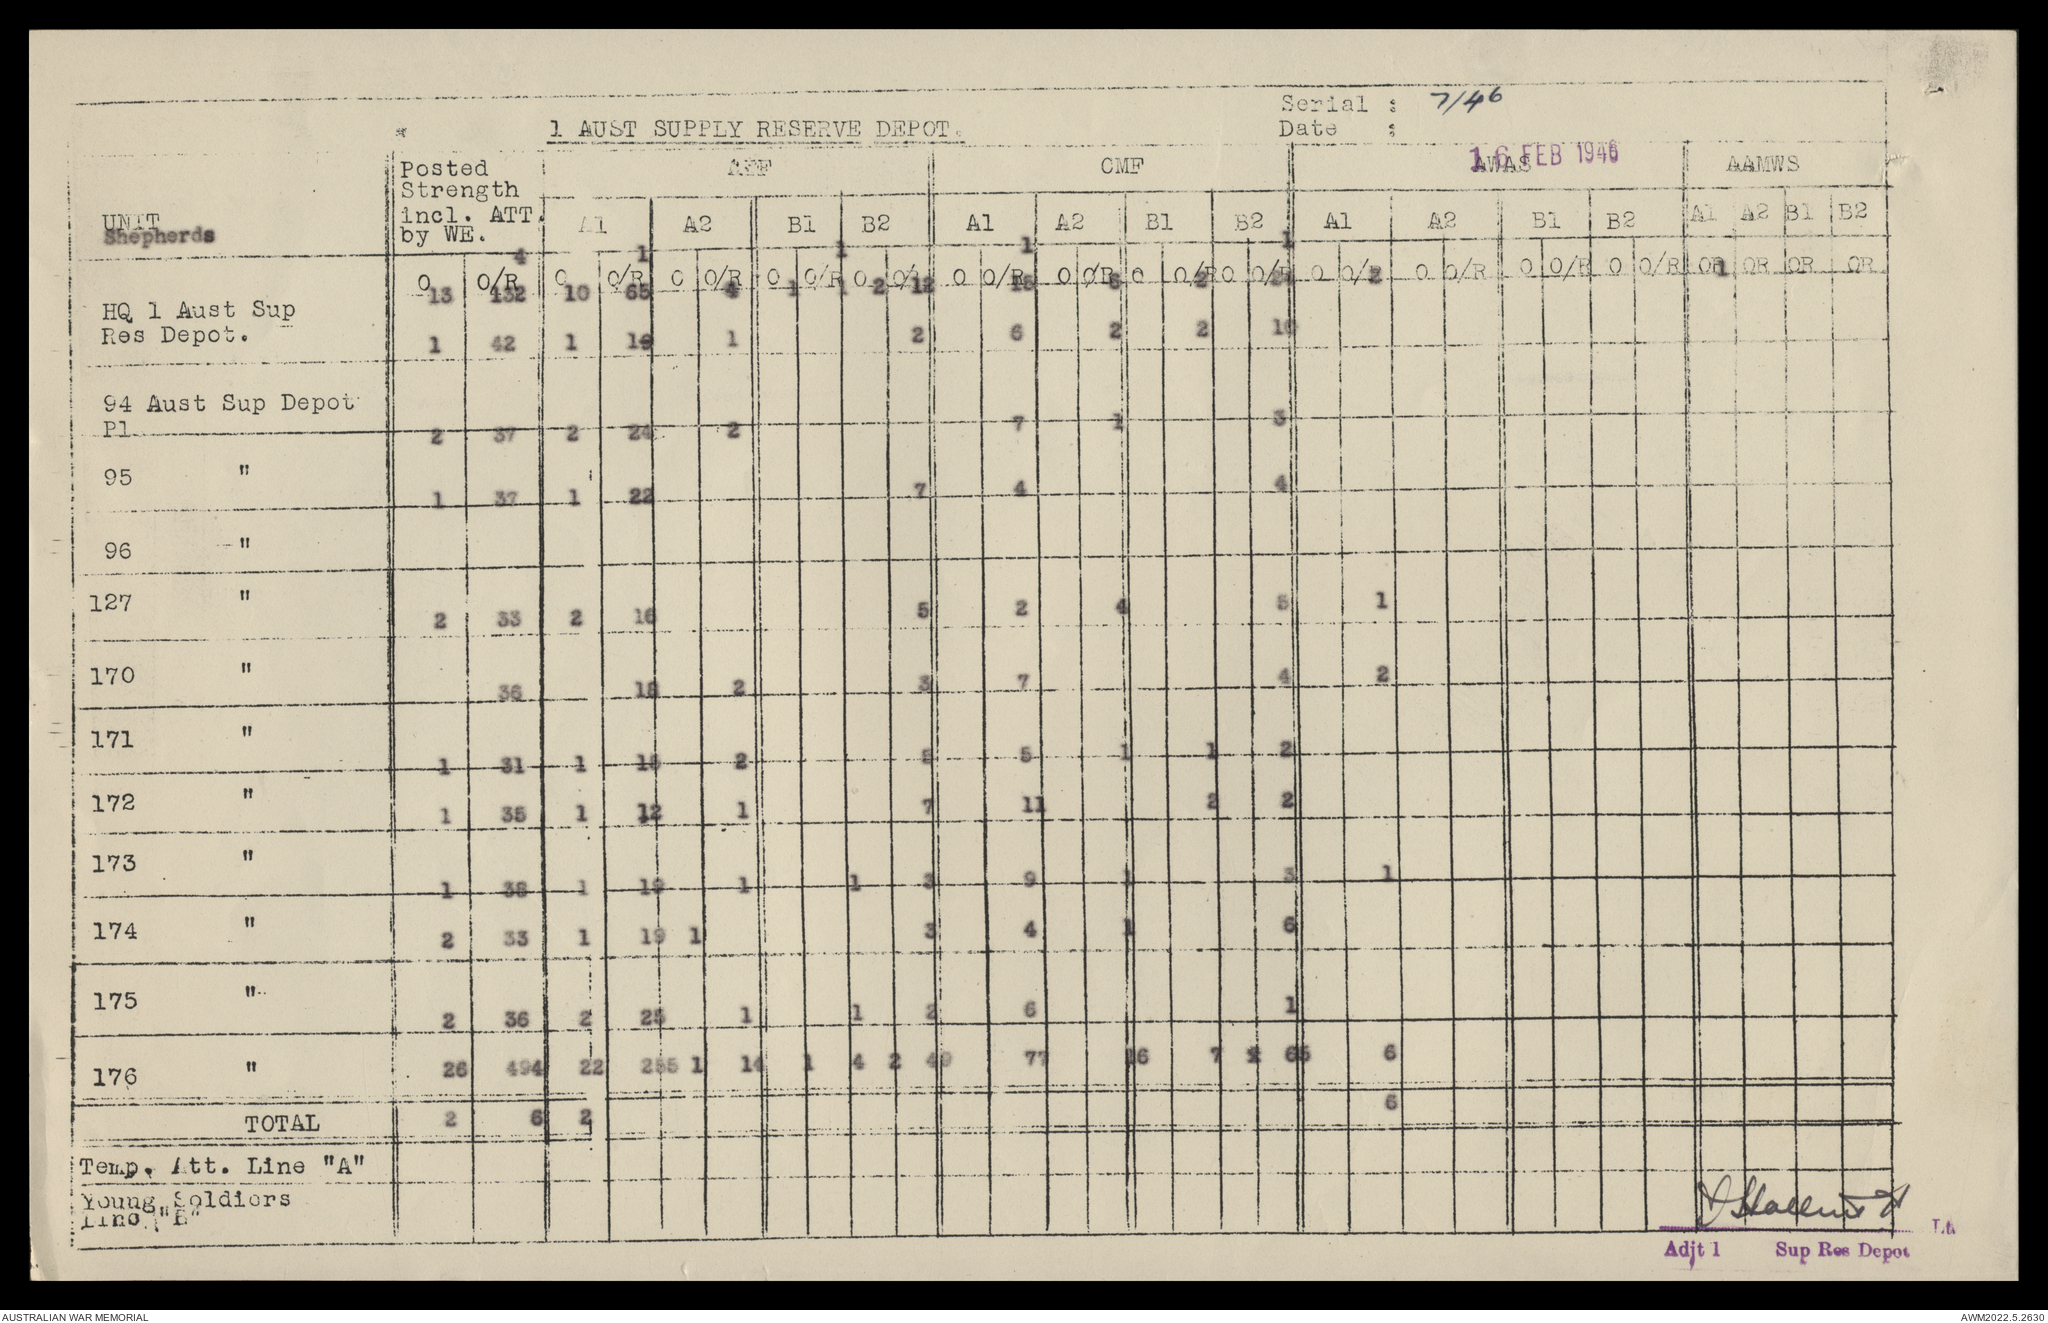 Serial : 7/46
* 1 AUST SUPPLY RESERVE DEPOT.
Date :
16 FEB 1946
UNIT
Shepherds
Posted
Strength
incl. ATT.
by WE.
AIF CMF AWAS AAMWS
A1 A2 B1 B2 A1 A2 B1 B2 A1 A2 B1 B2 A1 A2 B1 B2
4 1 1 1 1
O O/R O O/R O O/R O O/R O O/R O O/R O O/R O O/R O O/R O O/R O O/R O O/R O O/R OR OR OR OR
HQ 1 Aust Sup
Res Depot.
13 132 10 65 4 1 1 2 12 15 6 2 2 1
1 42 1 19 1 2 6 2 2 10
94 Aust Sup Depot
Pl
2 37 2 24 2 7 1 3
95 "
1 37 1 22 7 4 4
96 "
127 "
2 33 2 16 5 2 4 5 1
170 "
36 18 2 3 7 4 2
171 "
1 31 1 15 2 5 5 1 1 2
172 "
1 35 1 12 1 7 11 2 2
173 "
1 38 1 19 1 1 3 9 1 3 1
174 "
2 33 1 19 1 3 4 1 6
175 "
2 36 2 25 1 1 2 6 1
176 "
26 494 22 255 1 14 1 4 2 49 77 16 7 65 6
TOTAL
2 6 2 6
Temp. Att. Line "A"
Young Soldiers
Line "B"
Lt.
Adjt 1 Sup Res Depot
AUSTRALIAN WAR MEMORIAL
AWM2022.5.2630